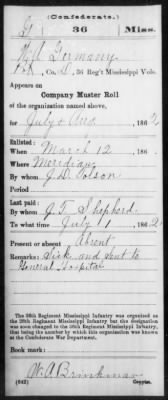 (Confederate.)
G 36 Miss.
W. A. Germany
Co. , 36 Reg't Mississippi Vols.
Appears on
Company Muster Roll
of the organization named above,
for July & Aug, 1862
Enlisted:
When March 12, 186
Where Meridian
By whom J. D. Polson
Period
Last paid:
By whom J. T. Shepherd
To what time July 1, 1862
Present or absent Absent
Remarks: Sick and sent to
General Hospital
The 36th Regiment Mississippi Infantry was organized as
the 36th Regiment Mississippi Infantry, but the designation
was soon changed to the 36th Regiment Mississippi Infantry,
that being the number by which this organization was known
at the Confederate War Department.
Book mark:
W. A. Brinkman
(642) Copyist.